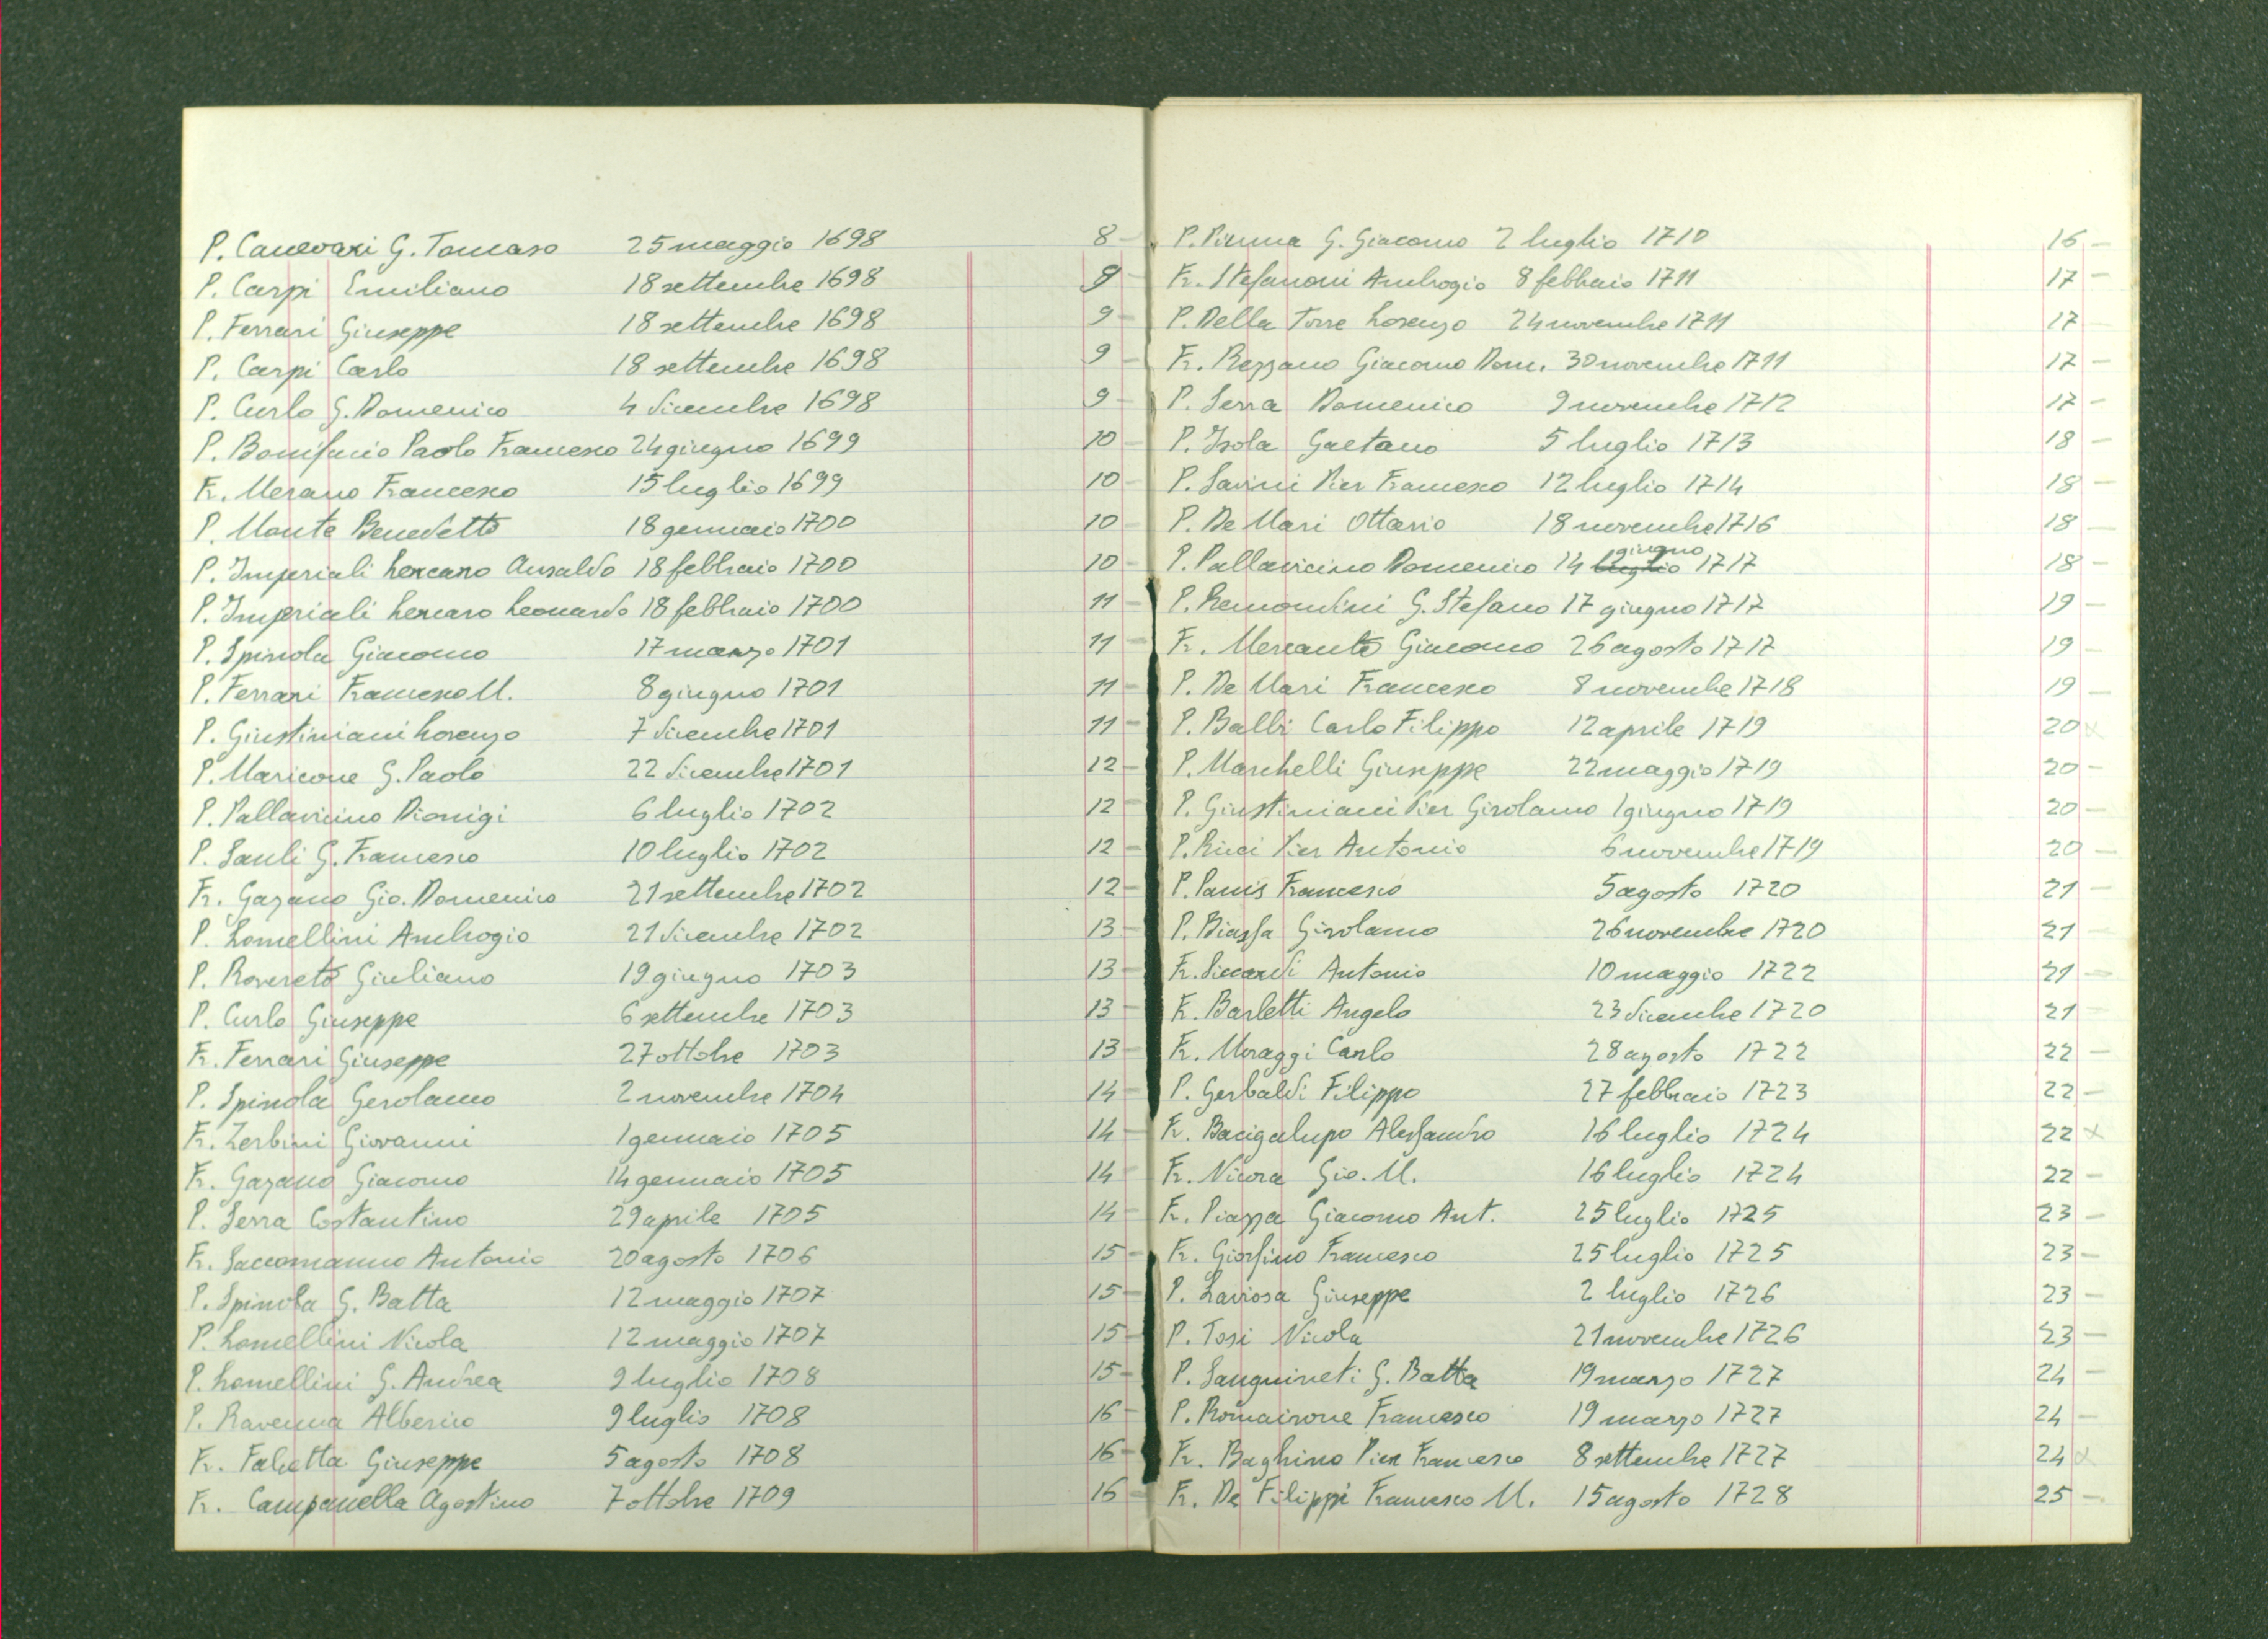 P. Canevari G. Tomaso 25 maggio 1698 8 -
P. Carpi Emiliano 18 settembre 1698 9 -
P. Ferrari Giuseppe 18 settembre 1698 9 -
P. Carpi Carlo 18 settembre 1698 9 -
P. Curlo G. Domenico 4 dicembre 1698 9 -
P. Bonifacio Paolo Francesco 24 giugno 1699 10 -
Fr. Merano Francesco 15 luglio 1699 10 -
P. Monte Benedetto 18 gennaio 1700 10 -
P. Imperiali Lercaro Ansaldo 18 febbraio 1700 10 -
P. Imperiali Lercaro Leonardo 18 febbraio 1700 11 -
P. Spinola Giacomo 17 marzo 1701 11 -
P. Ferrari Francesco M. 8 giugno 1701 11 -
P. Giustiniani Lorenzo 7 dicembre 1701 11 -
P. Maricone G. Paolo 22 dicembre 1701 12 -
P. Pallavicino Dionigi 6 luglio 1702 12 -
P. Sauli G. Francesco 10 luglio 1702 12 -
Fr. Gazano Gio. Domenico 21 settembre 1702 12 -
P. Lomellini Ambrogio 21 dicembre 1702 13 -
P. Rovereto Giuliano 19 giugno 1703 13 -
P. Curlo Giuseppe 6 settembre 1703 13 -
Fr. Ferrari Giuseppe 27 ottobre 1703 13 -
P. Spinola Gerolamo 2 novembre 1704 14 -
Fr. Zerbini Giovanni 1 gennaio 1705 14 -
Fr. Gazano Giacomo 14 gennaio 1705 14 -
P. Serra Costantino 29 aprile 1705 14 -
Fr. Saccomanno Antonio 20 agosto 1706 15 -
P. Spinola G. Batta 12 maggio 1707 15 -
P. Lomellini Nicola 12 maggio 1707 15 -
P. Lomellini G. Andrea 9 luglio 1708 15 -
P. Ravenna Alberico 9 luglio 1708 16 -
Fr. Falcetta Giuseppe 5 agosto 1708 16 -
Fr. Campanella Agostino 7 ottobre 1709 16 -
P. G. Giacomo 2 luglio 1710 16 -
Fr. Stefanoni Ambrogio 8 febbraio 1711 17 -
P. Della Torre Lorenzo 24 novembre 1711 17 -
Fr. Rezzano Giacomo Dom. 30 novembre 1711 17 -
P. Serra Domenico 9 novembre 1712 17 -
P. Isola Gaetano 5 luglio 1713 18 -
P. Savini Pier Francesco 12 luglio 1714 18 -
P. De Mari Ottavio 18 novembre 1716 18 -
P. Pallavicino Domenico 14 luglio giugno 1717 18 -
P. Remondini G. Stefano 17 giugno 1717 19 -
Fr. Mercante Giacomo 26 agosto 1717 19 -
P. De Mari Francesco 8 novembre 1718 19 -
P. Balbi Carlo Filippo 12 aprile 1719 20 x
P. Marchelli Giuseppe 22 maggio 1719 20 -
P. Giustiniani Pier Girolamo 1 giugno 1719 20 -
P. Ricci Pier Antonio 6 novembre 1719 20 -
P. Panis Francesco 5 agosto 1720 21 -
P. Biassa Girolamo 26 novembre 1720 21 -
Fr. Siccardi Antonio 10 maggio 1722 21 -
Fr. Barletti Angelo 23 dicembre 1720 21 -
Fr. Moraggi Carlo 28 agosto 1722 22 -
P. Gerbaldi Filippo 27 febbraio 1723 22 -
Fr. Bacigalupo Alessandro 16 luglio 1724 22 x
Fr. Nicora Gio. M. 16 luglio 1724 22 -
Fr. Piazza Giacomo Ant. 25 luglio 1725 23 -
Fr. Giorfino Francesco 25 luglio 1725 23 -
P. Laviosa Giuseppe 2 luglio 1726 23 -
P. Tosi Nicola 21 novembre 1726 23 -
P. Sanguineti G. Batta 19 marzo 1727 24 -
P. Romairone Francesco 19 marzo 1727 24 -
Fr. Baghino Pier Francesco 8 settembre 1727 24 x
Fr. De Filippi Francesco M. 15 agosto 1728 25 -